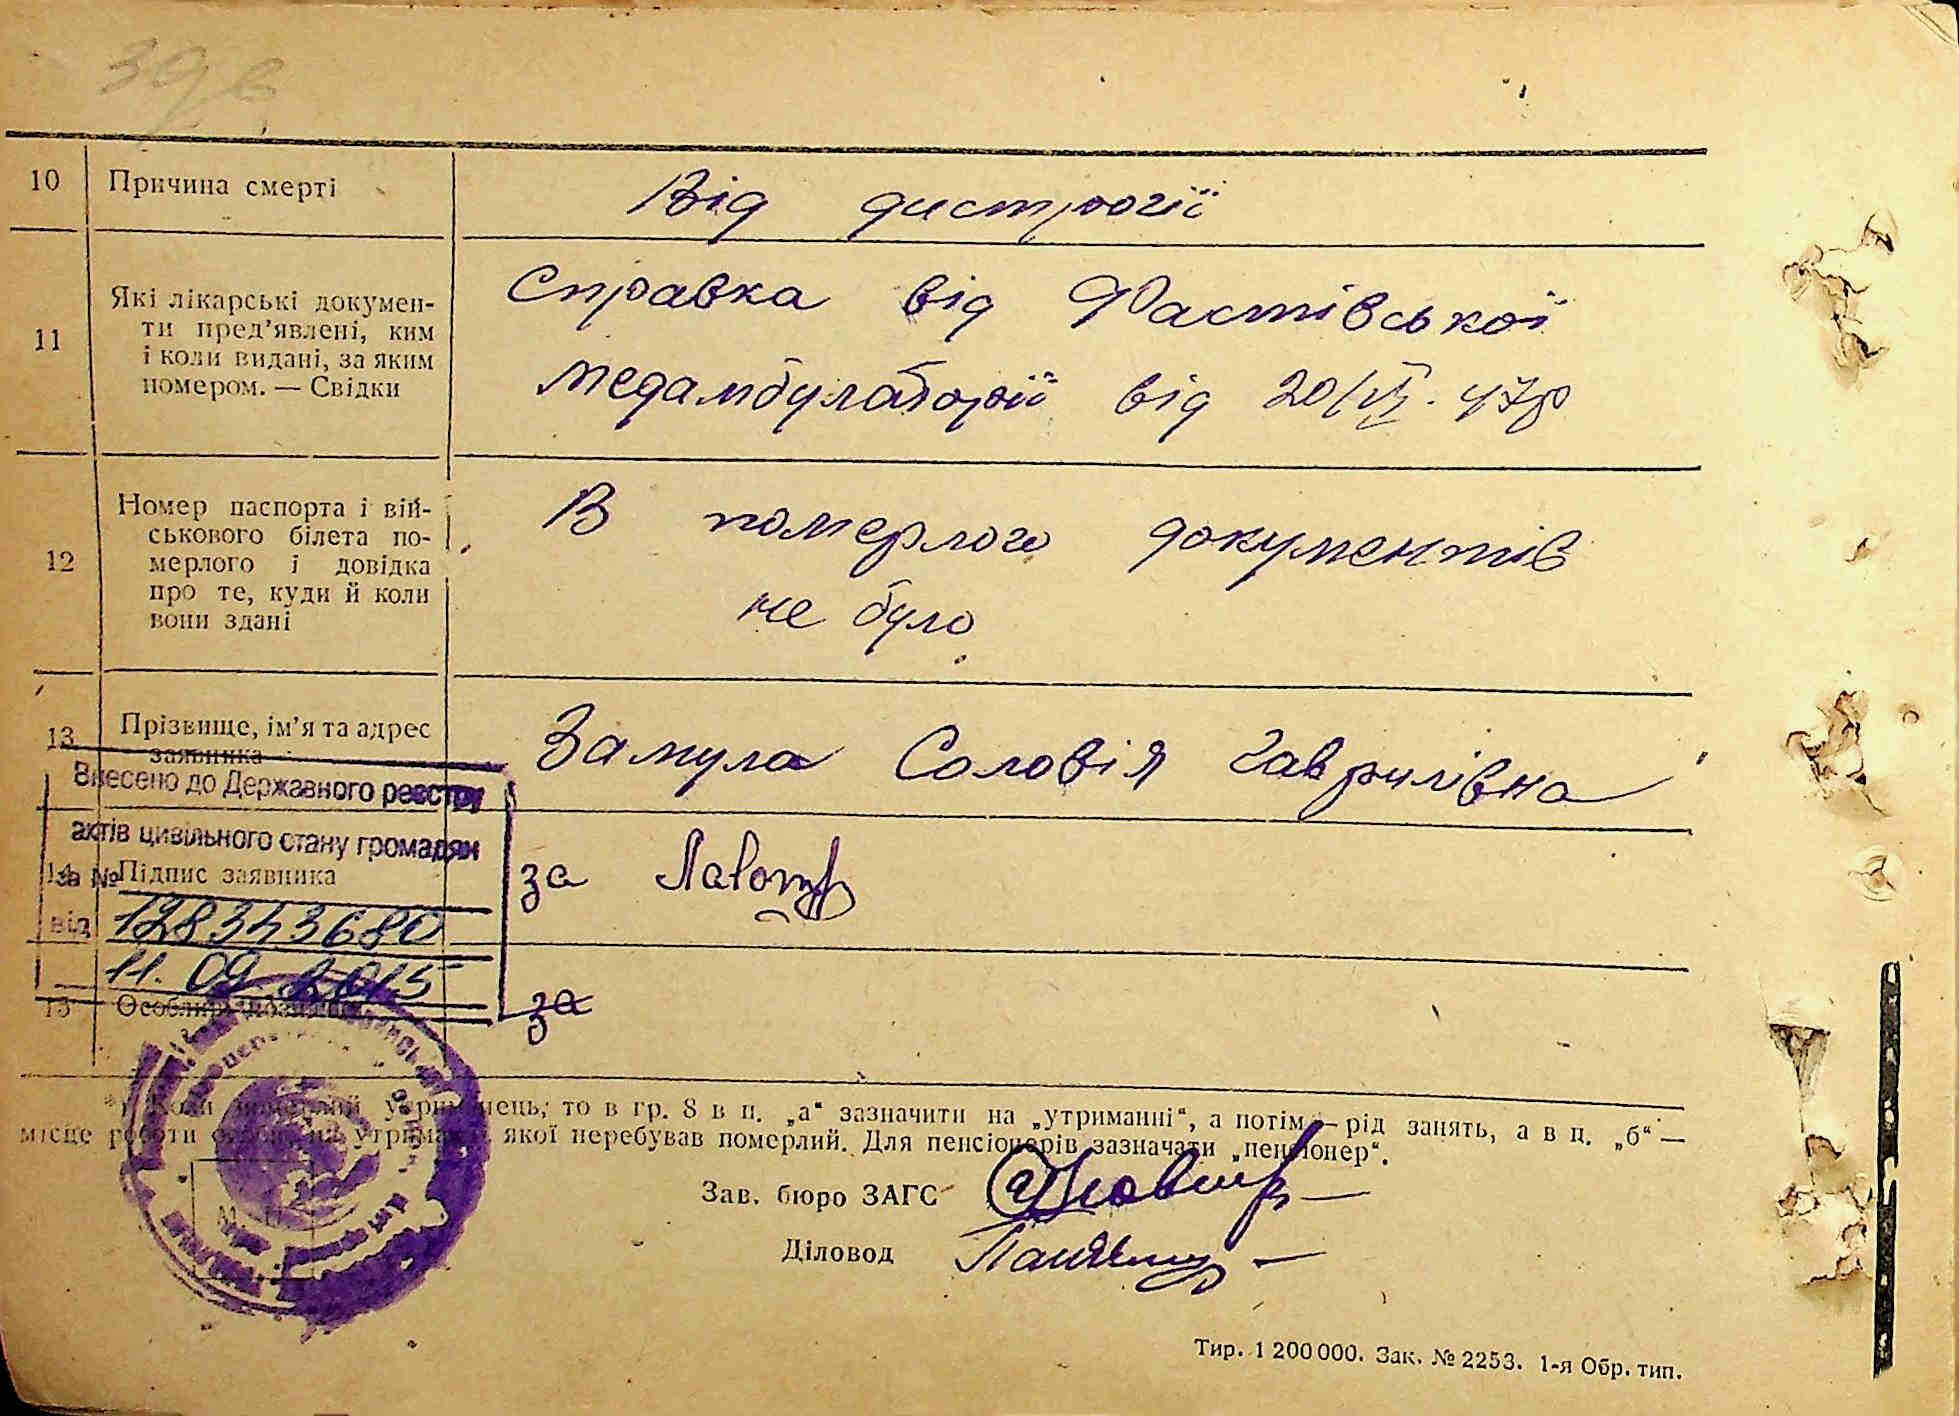 39 в
10 Причина смерті
Від дистрогії
11 Які лікарські докумен-
ти пред'явлені, ким
і коли видані, за яким
номером. — Свідки
Справка від Фастівської
медамбулаторії від 20/VI. 47р
12 Номер паспорта і вій-
ськового білета по-
мерлого і довідка
про те, куди й коли
вони здані
В померлого документів
не було
13 Прізвище, ім'я та адрес
заявника
Замула Соловія Гаврилівна
Внесено до Державного реєстру
актів цивільного стану громадян
за №
14 Підпис заявника
за
від 128343680
11. 09. 2015
15 Особливі
за
*) Коли померлий утриманець, то в гр. 8 в п. „а“ зазначити на „утриманні“, а потім — рід занять, а в п. „б“ —
місце роботи особи, на утриманні якої перебував померлий. Для пенсіонерів зазначати „пенсіонер“.
Зав. бюро ЗАГС
Діловод
М. П.
Тир. 1 200 000. Зак. № 2253. 1-я Обр. тип.